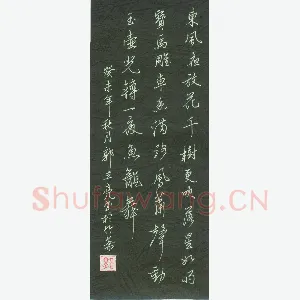 東風夜放花千樹更吹落星如雨
寶馬雕車香滿路鳳簫聲動
玉壺光轉一夜魚龍舞
癸未年秋月郭
Shufawang.CN